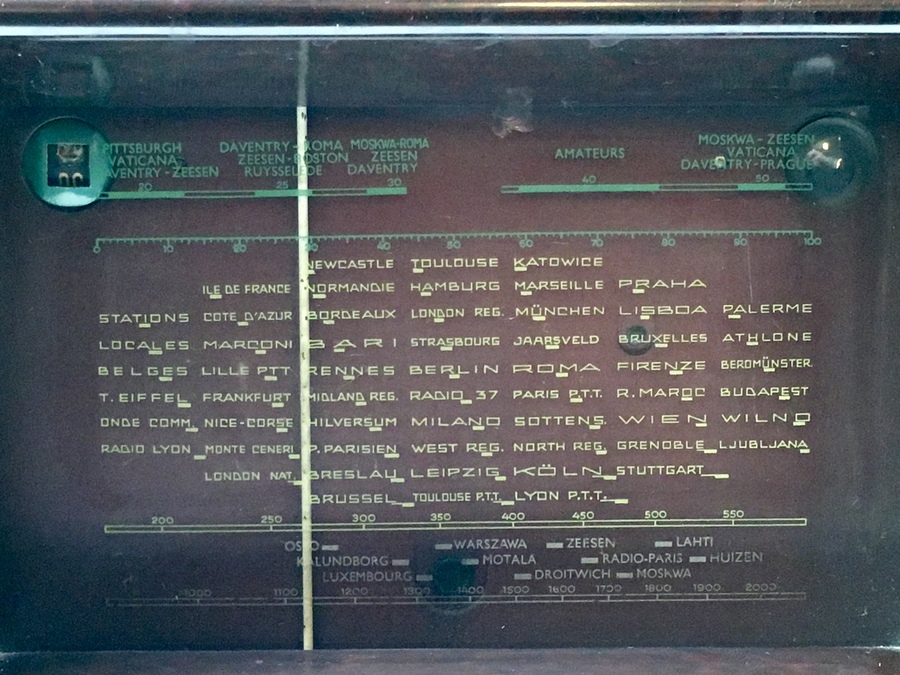 PITTSBURGH DAVENTRY-ROMA MOSKWA-ROMA AMATEURS MOSKWA-ZEESEN
VATICANA ZEESEN-BOSTON ZEESEN VATICANA
DAVENTRY-ZEESEN RUYSSELEDE DAVENTRY DAVENTRY-PRAGUE
20 25 30 40 50
0 10 20 30 40 50 60 70 80 90 100
NEWCASTLE TOULOUSE KATOWICE
ILE DE FRANCE NORMANDIE HAMBURG MARSEILLE PRAHA
STATIONS COTE D'AZUR BORDEAUX LONDON REG. MÜNCHEN LISBOA PALERME
LOCALES MARCONI BARI STRASBOURG JAARSVELD BRUXELLES ATHLONE
BELGES LILLE PTT RENNES BERLIN ROMA FIRENZE BEROMÜNSTER
T. EIFFEL FRANKFURT MIDLAND REG. RADIO 37 PARIS P.T.T. R. MAROC BUDAPEST
ONDE COMM. NICE-CORSE HILVERSUM MILANO SOTTENS WIEN WILNO
RADIO LYON MONTE CENERI P. PARISIEN WEST REG. NORTH REG. GRENOBLE LJUBLJANA
LONDON NAT. BRESLAU LEIPZIG KÖLN STUTTGART
BRUSSEL TOULOUSE P.T.T. LYON P.T.T.
200 250 300 350 400 450 500 550
OSLO WARSZAWA ZEESEN LAHTI
KALUNDBORG MOTALA RADIO-PARIS HUIZEN
LUXEMBOURG DROITWICH MOSKWA
1000 1100 1200 1300 1400 1500 1600 1700 1800 1900 2000